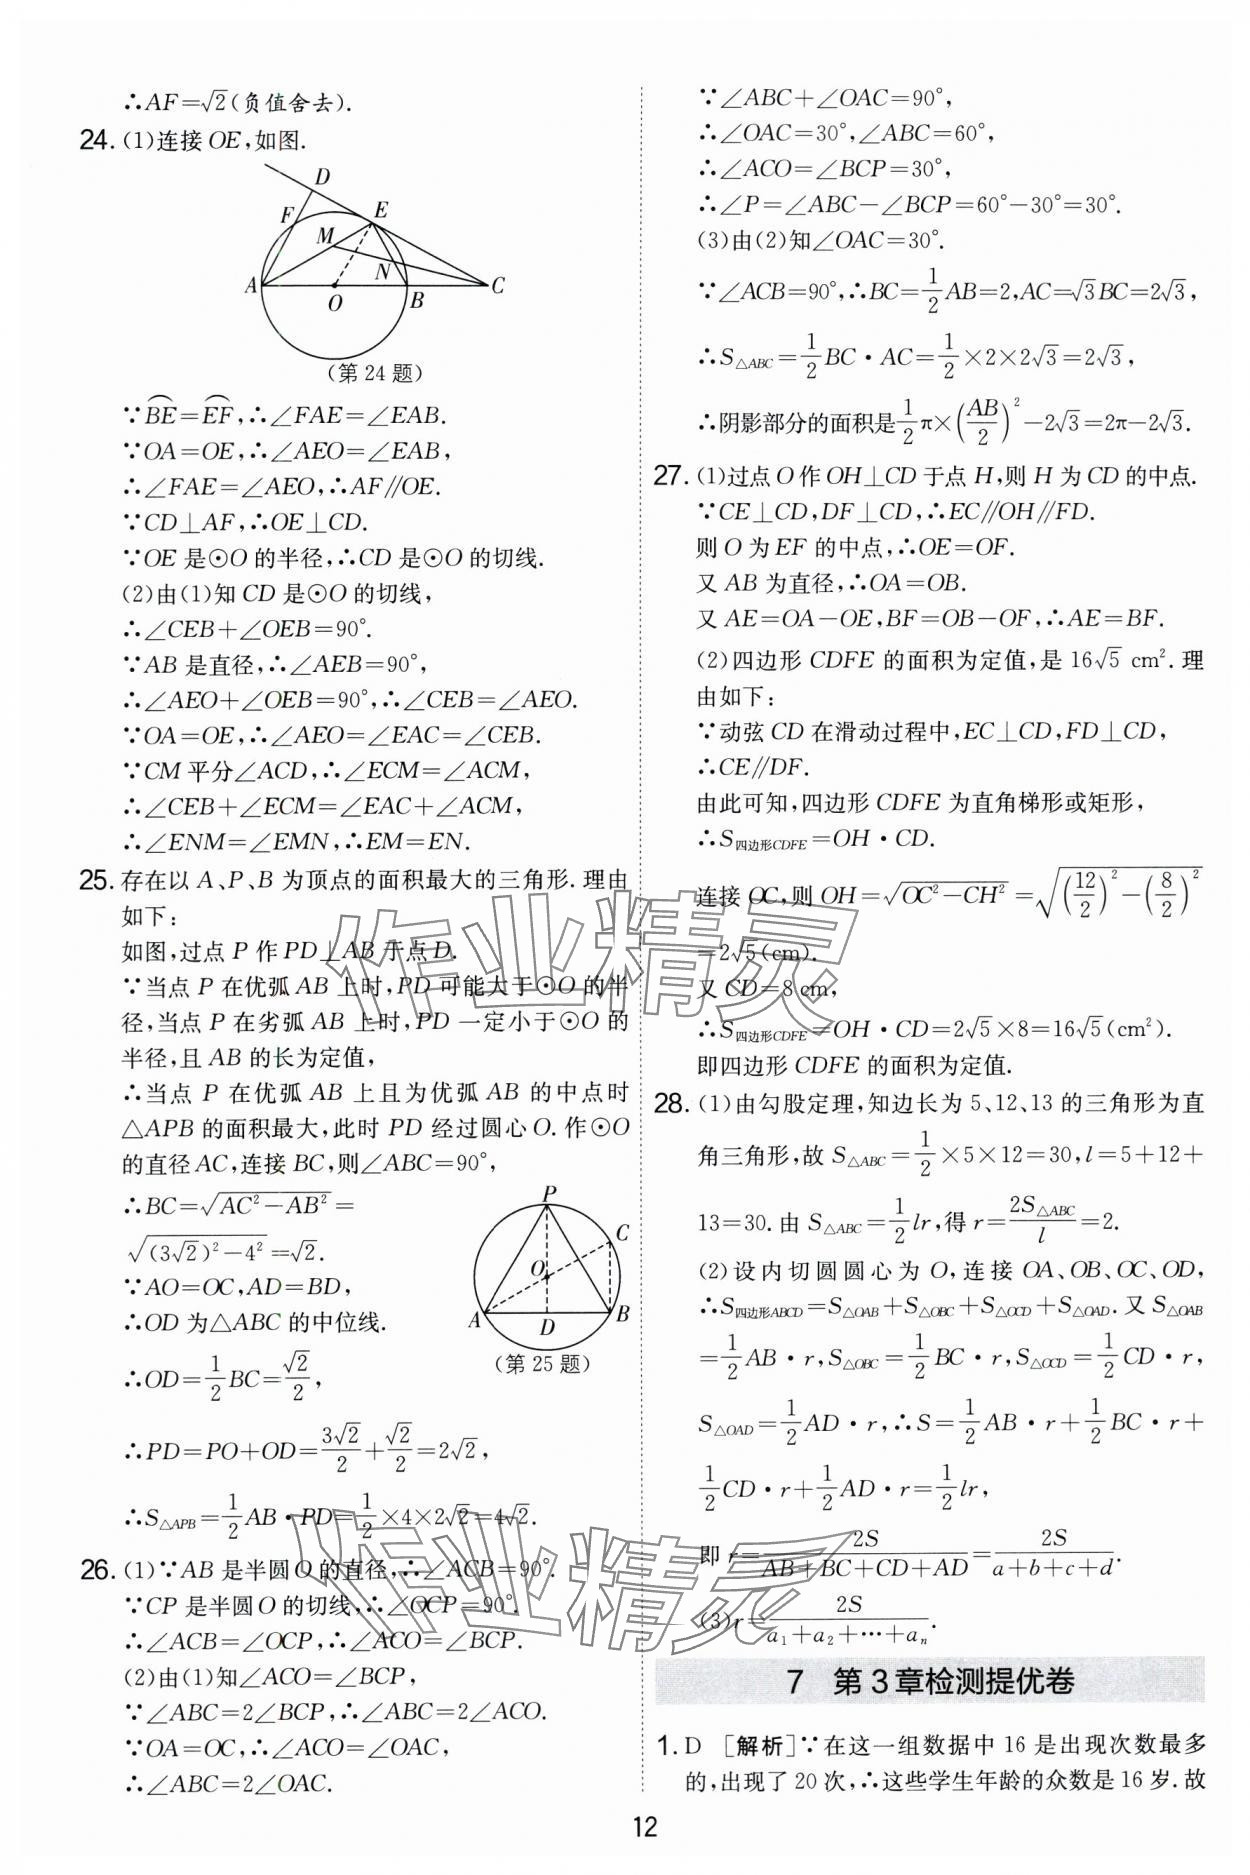 ∴AF=√2(负值舍去).
24. (1)连接 OE,如图.
D
F
E
M
N
A
O
B
C
(第24题)
∵⌒BE=⌒EF,∴∠FAE=∠EAB.
∵OA=OE,∴∠AEO=∠EAB,
∴∠FAE=∠AEO,∴AF∥OE.
∵CD⊥AF,∴OE⊥CD.
∵OE 是⊙O 的半径,∴CD 是⊙O 的切线.
(2)由(1)知 CD 是⊙O 的切线,
∴∠CEB+∠OEB=90°.
∵AB 是直径,∴∠AEB=90°,
∴∠AEO+∠OEB=90°,∴∠CEB=∠AEO.
∵OA=OE,∴∠AEO=∠EAC=∠CEB.
∵CM 平分∠ACD,∴∠ECM=∠ACM,
∴∠CEB+∠ECM=∠EAC+∠ACM,
∴∠ENM=∠EMN,∴EM=EN.
25. 存在以 A、P、B 为顶点的面积最大的三角形.理由
如下:
如图,过点 P 作 PD⊥AB 于点 D.
∵当点 P 在优弧 AB 上时,PD 可能大于⊙O 的半
径,当点 P 在劣弧 AB 上时,PD 一定小于⊙O 的
半径,且 AB 的长为定值,
∴当点 P 在优弧 AB 上且为优弧 AB 的中点时
△APB 的面积最大,此时 PD 经过圆心 O.作⊙O
的直径 AC,连接 BC,则∠ABC=90°,
∴BC=√(AC²-AB²)=
√((3√2)²-4²)=√2.
∵AO=OC,AD=BD,
∴OD 为△ABC 的中位线.
∴OD=1/2 BC=√2/2,
P
C
O
A
D
B
(第25题)
∴PD=PO+OD=3√2/2+√2/2=2√2,
∴S△APB=1/2 AB·PD=1/2×4×2√2=4√2.
26. (1)∵AB 是半圆 O 的直径,∴∠ACB=90°.
∵CP 是半圆 O 的切线,∴∠OCP=90°.
∴∠ACB=∠OCP,∴∠ACO=∠BCP.
(2)由(1)知∠ACO=∠BCP,
∵∠ABC=2∠BCP,∴∠ABC=2∠ACO.
∵OA=OC,∴∠ACO=∠OAC,
∴∠ABC=2∠OAC.
∵∠ABC+∠OAC=90°,
∴∠OAC=30°,∠ABC=60°,
∴∠ACO=∠BCP=30°,
∴∠P=∠ABC-∠BCP=60°-30°=30°.
(3)由(2)知∠OAC=30°.
∵∠ACB=90°,∴BC=1/2 AB=2,AC=√3BC=2√3,
∴S△ABC=1/2 BC·AC=1/2×2×2√3=2√3,
∴阴影部分的面积是1/2 π×(AB/2)²-2√3=2π-2√3.
27. (1)过点 O 作 OH⊥CD 于点 H,则 H 为 CD 的中点.
∵CE⊥CD,DF⊥CD,∴EC∥OH∥FD.
则 O 为 EF 的中点,∴OE=OF.
又 AB 为直径,∴OA=OB.
又 AE=OA-OE,BF=OB-OF,∴AE=BF.
(2)四边形 CDFE 的面积为定值,是 16√5 cm².理
由如下:
∵动弦 CD 在滑动过程中,EC⊥CD,FD⊥CD,
∴CE∥DF.
由此可知,四边形 CDFE 为直角梯形或矩形,
∴S四边形CDFE=OH·CD.
连接 OC,则 OH=√(OC²-CH²)=√((12/2)²-(8/2)²)
=2√5(cm).
又 CD=8 cm,
∴S四边形CDFE=OH·CD=2√5×8=16√5(cm²).
即四边形 CDFE 的面积为定值.
28. (1)由勾股定理,知边长为 5、12、13 的三角形为直
角三角形,故 S△ABC=1/2×5×12=30,l=5+12+
13=30.由 S△ABC=1/2 lr,得 r=2S△ABC/l=2.
(2)设内切圆圆心为 O,连接 OA、OB、OC、OD,
∴S四边形ABCD=S△OAB+S△OBC+S△OCD+S△OAD.又 S△OAB
=1/2 AB·r,S△OBC=1/2 BC·r,S△OCD=1/2 CD·r,
S△OAD=1/2 AD·r,∴S=1/2 AB·r+1/2 BC·r+
1/2 CD·r+1/2 AD·r=1/2 lr,
即 r=2S/(AB+BC+CD+AD)=2S/(a+b+c+d).
(3)r=2S/(a₁+a₂+…+aₙ).
7 第3章检测提优卷
1. D [解析]∵在这一组数据中 16 是出现次数最多
的,出现了 20 次,∴这些学生年龄的众数是 16 岁.故
12
作业精灵
作业精灵